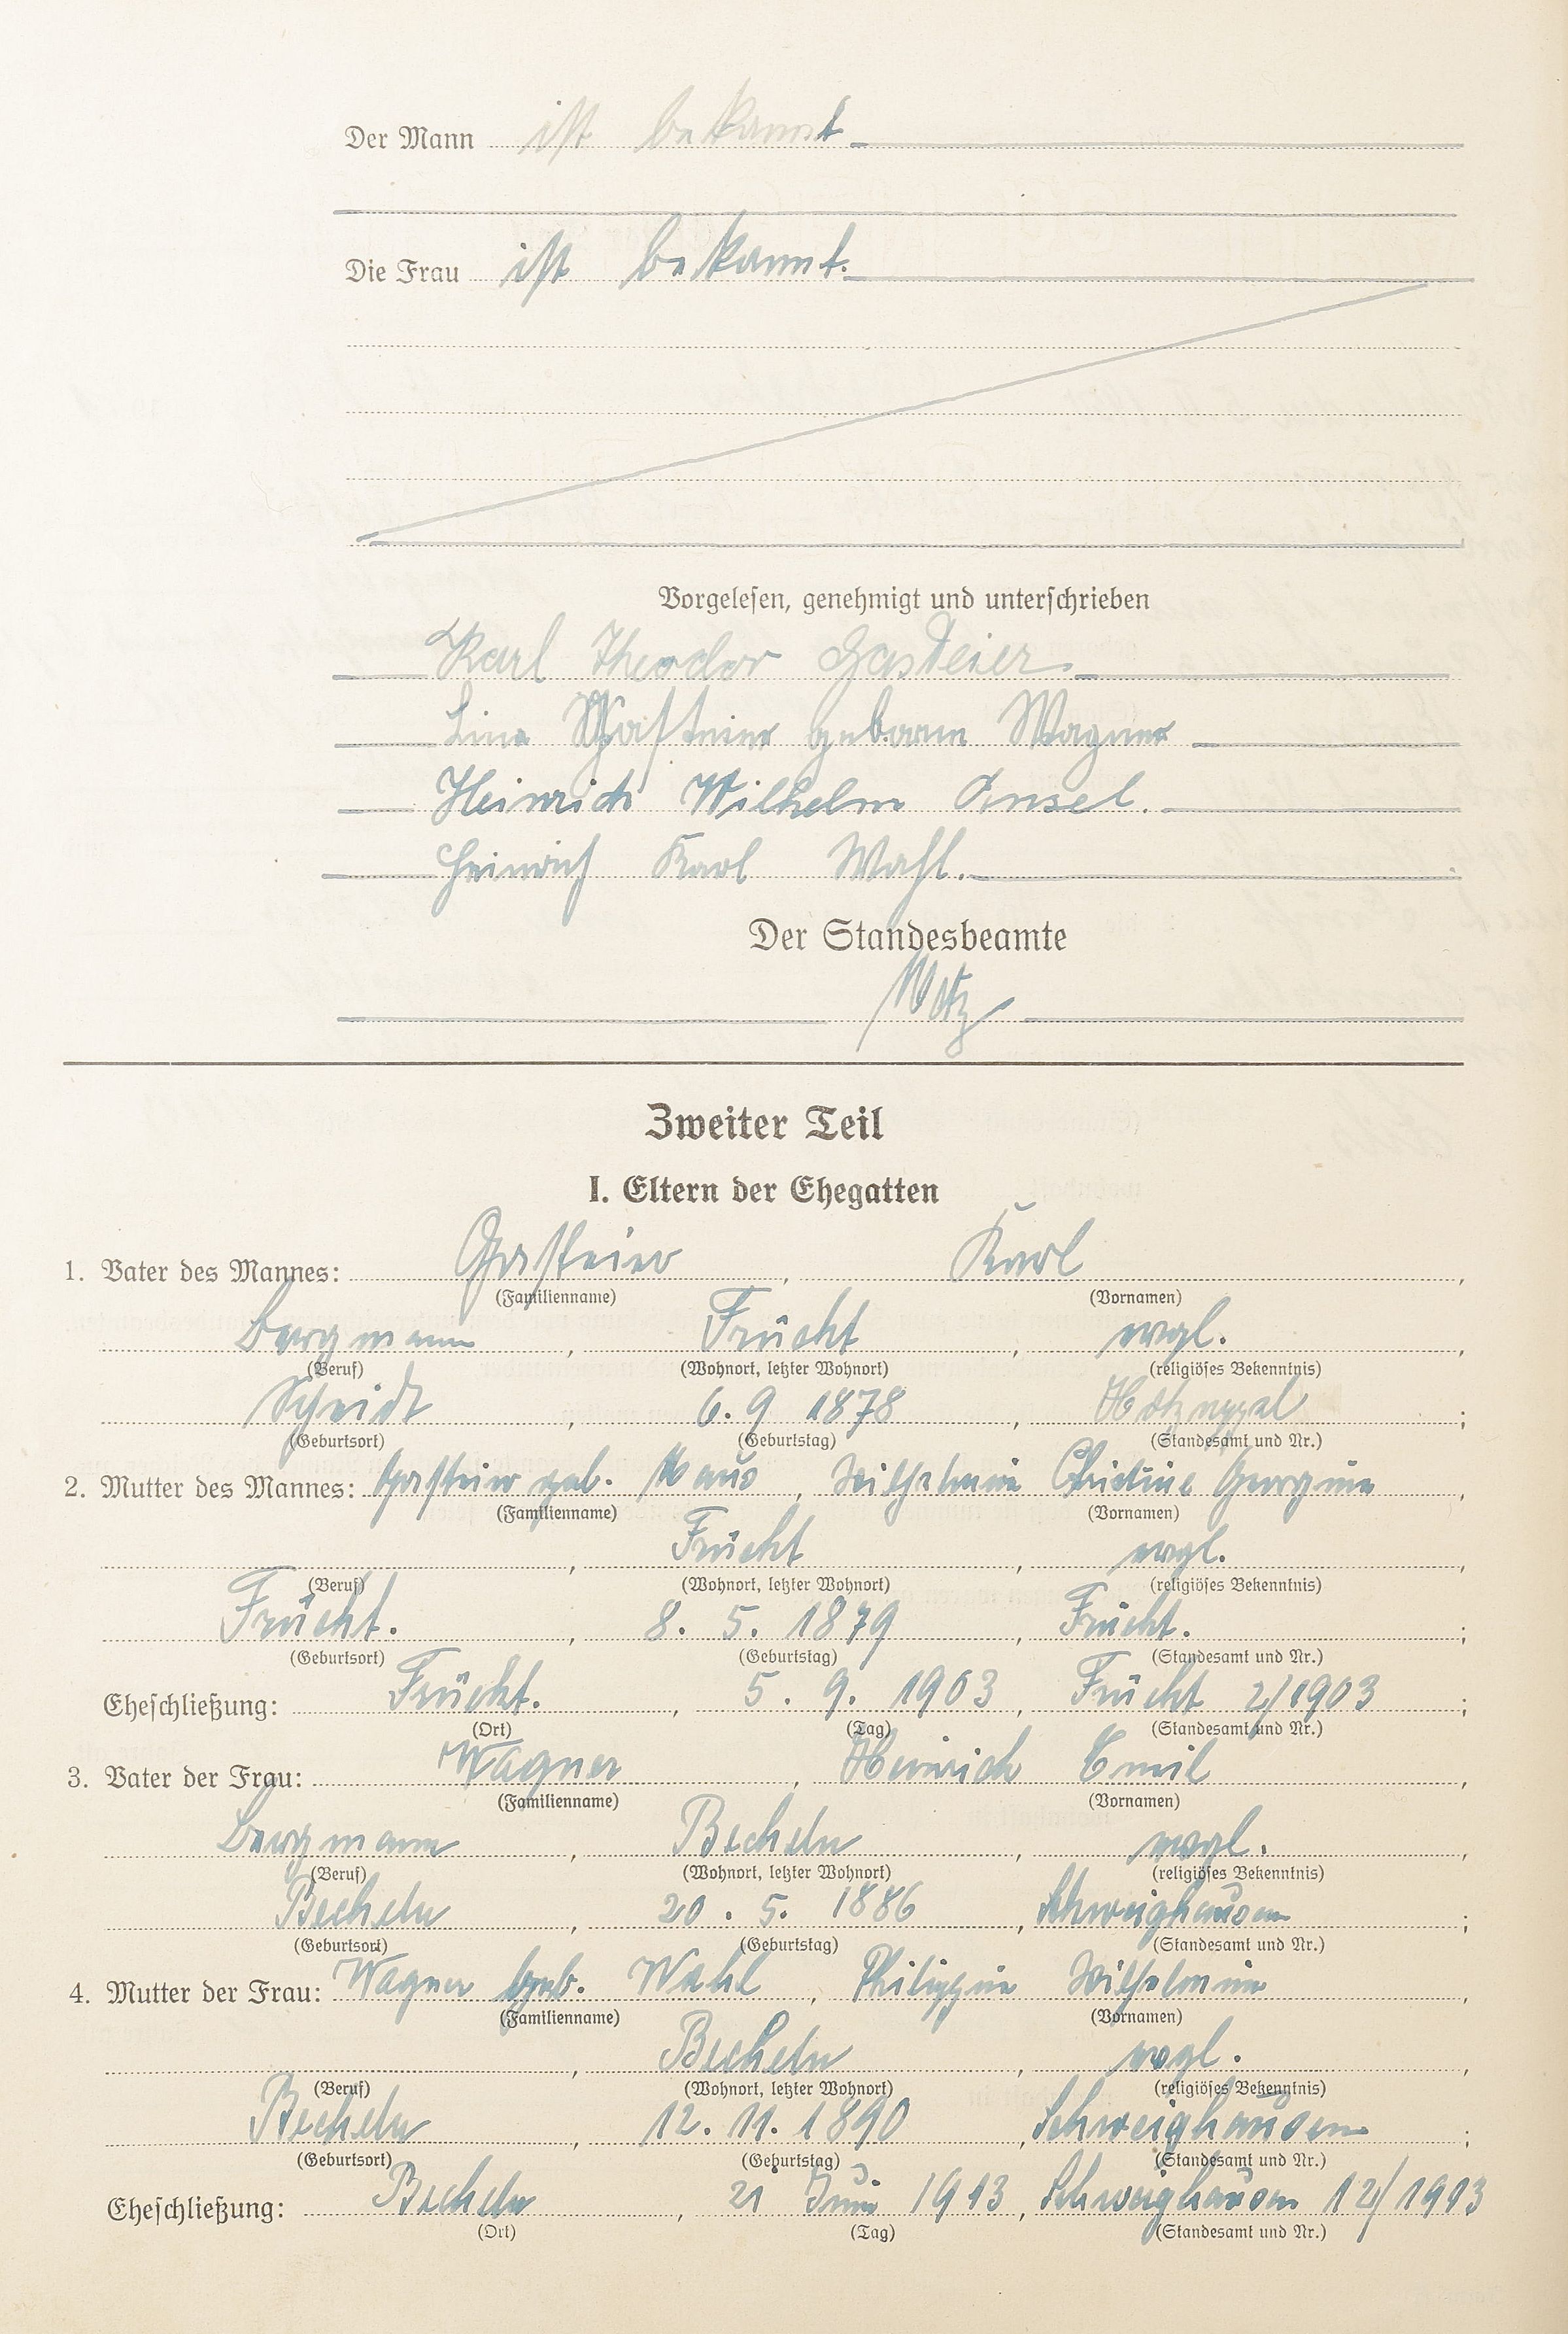 Der Mann ist bekannt
Die Frau ist bekannt.
Vorgelesen, genehmigt und unterschrieben
Karl Theodor Gasteier
Lina Gasteier geborene Wagner
Heinrich Wilhelm Insel.
Heinrich Karl Wahl.
Der Standesbeamte
Zweiter Teil
I. Eltern der Ehegatten
1. Vater des Mannes: Gasteier, Karl,
(Familienname) (Vornamen)
Bergmann, Frücht, evgl.,
(Beruf) (Wohnort, letzter Wohnort) (religiöses Bekenntnis)
Scheidt, 6. 9 1878, Holzappel;
(Geburtsort) (Geburtstag) (Standesamt und Nr.)
2. Mutter des Mannes: Gasteier geb. Maus, Wilhelmine Christine Georgine,
(Familienname) (Vornamen)
, Frücht, evgl.,
(Beruf) (Wohnort, letzter Wohnort) (religiöses Bekenntnis)
Frücht., 8. 5. 1879, Frücht.;
(Geburtsort) (Geburtstag) (Standesamt und Nr.)
Eheschließung: Frücht., 5. 9. 1903, Frücht 2/1903;
(Ort) (Tag) (Standesamt und Nr.)
3. Vater der Frau: Wagner, Heinrich Emil,
(Familienname) (Vornamen)
Bergmann, Becheln, evgl.,
(Beruf) (Wohnort, letzter Wohnort) (religiöses Bekenntnis)
Becheln, 20. 5. 1886, Schweighausen;
(Geburtsort) (Geburtstag) (Standesamt und Nr.)
4. Mutter der Frau: Wagner geb. Wahl, Philippine Wilhelmine,
(Familienname) (Vornamen)
, Becheln, evgl.,
(Beruf) (Wohnort, letzter Wohnort) (religiöses Bekenntnis)
Becheln, 12. 11. 1890, Schweighausen;
(Geburtsort) (Geburtstag) (Standesamt und Nr.)
Eheschließung: Becheln, 21 Juni 1913, Schweighausen 12/1913
(Ort) (Tag) (Standesamt und Nr.)